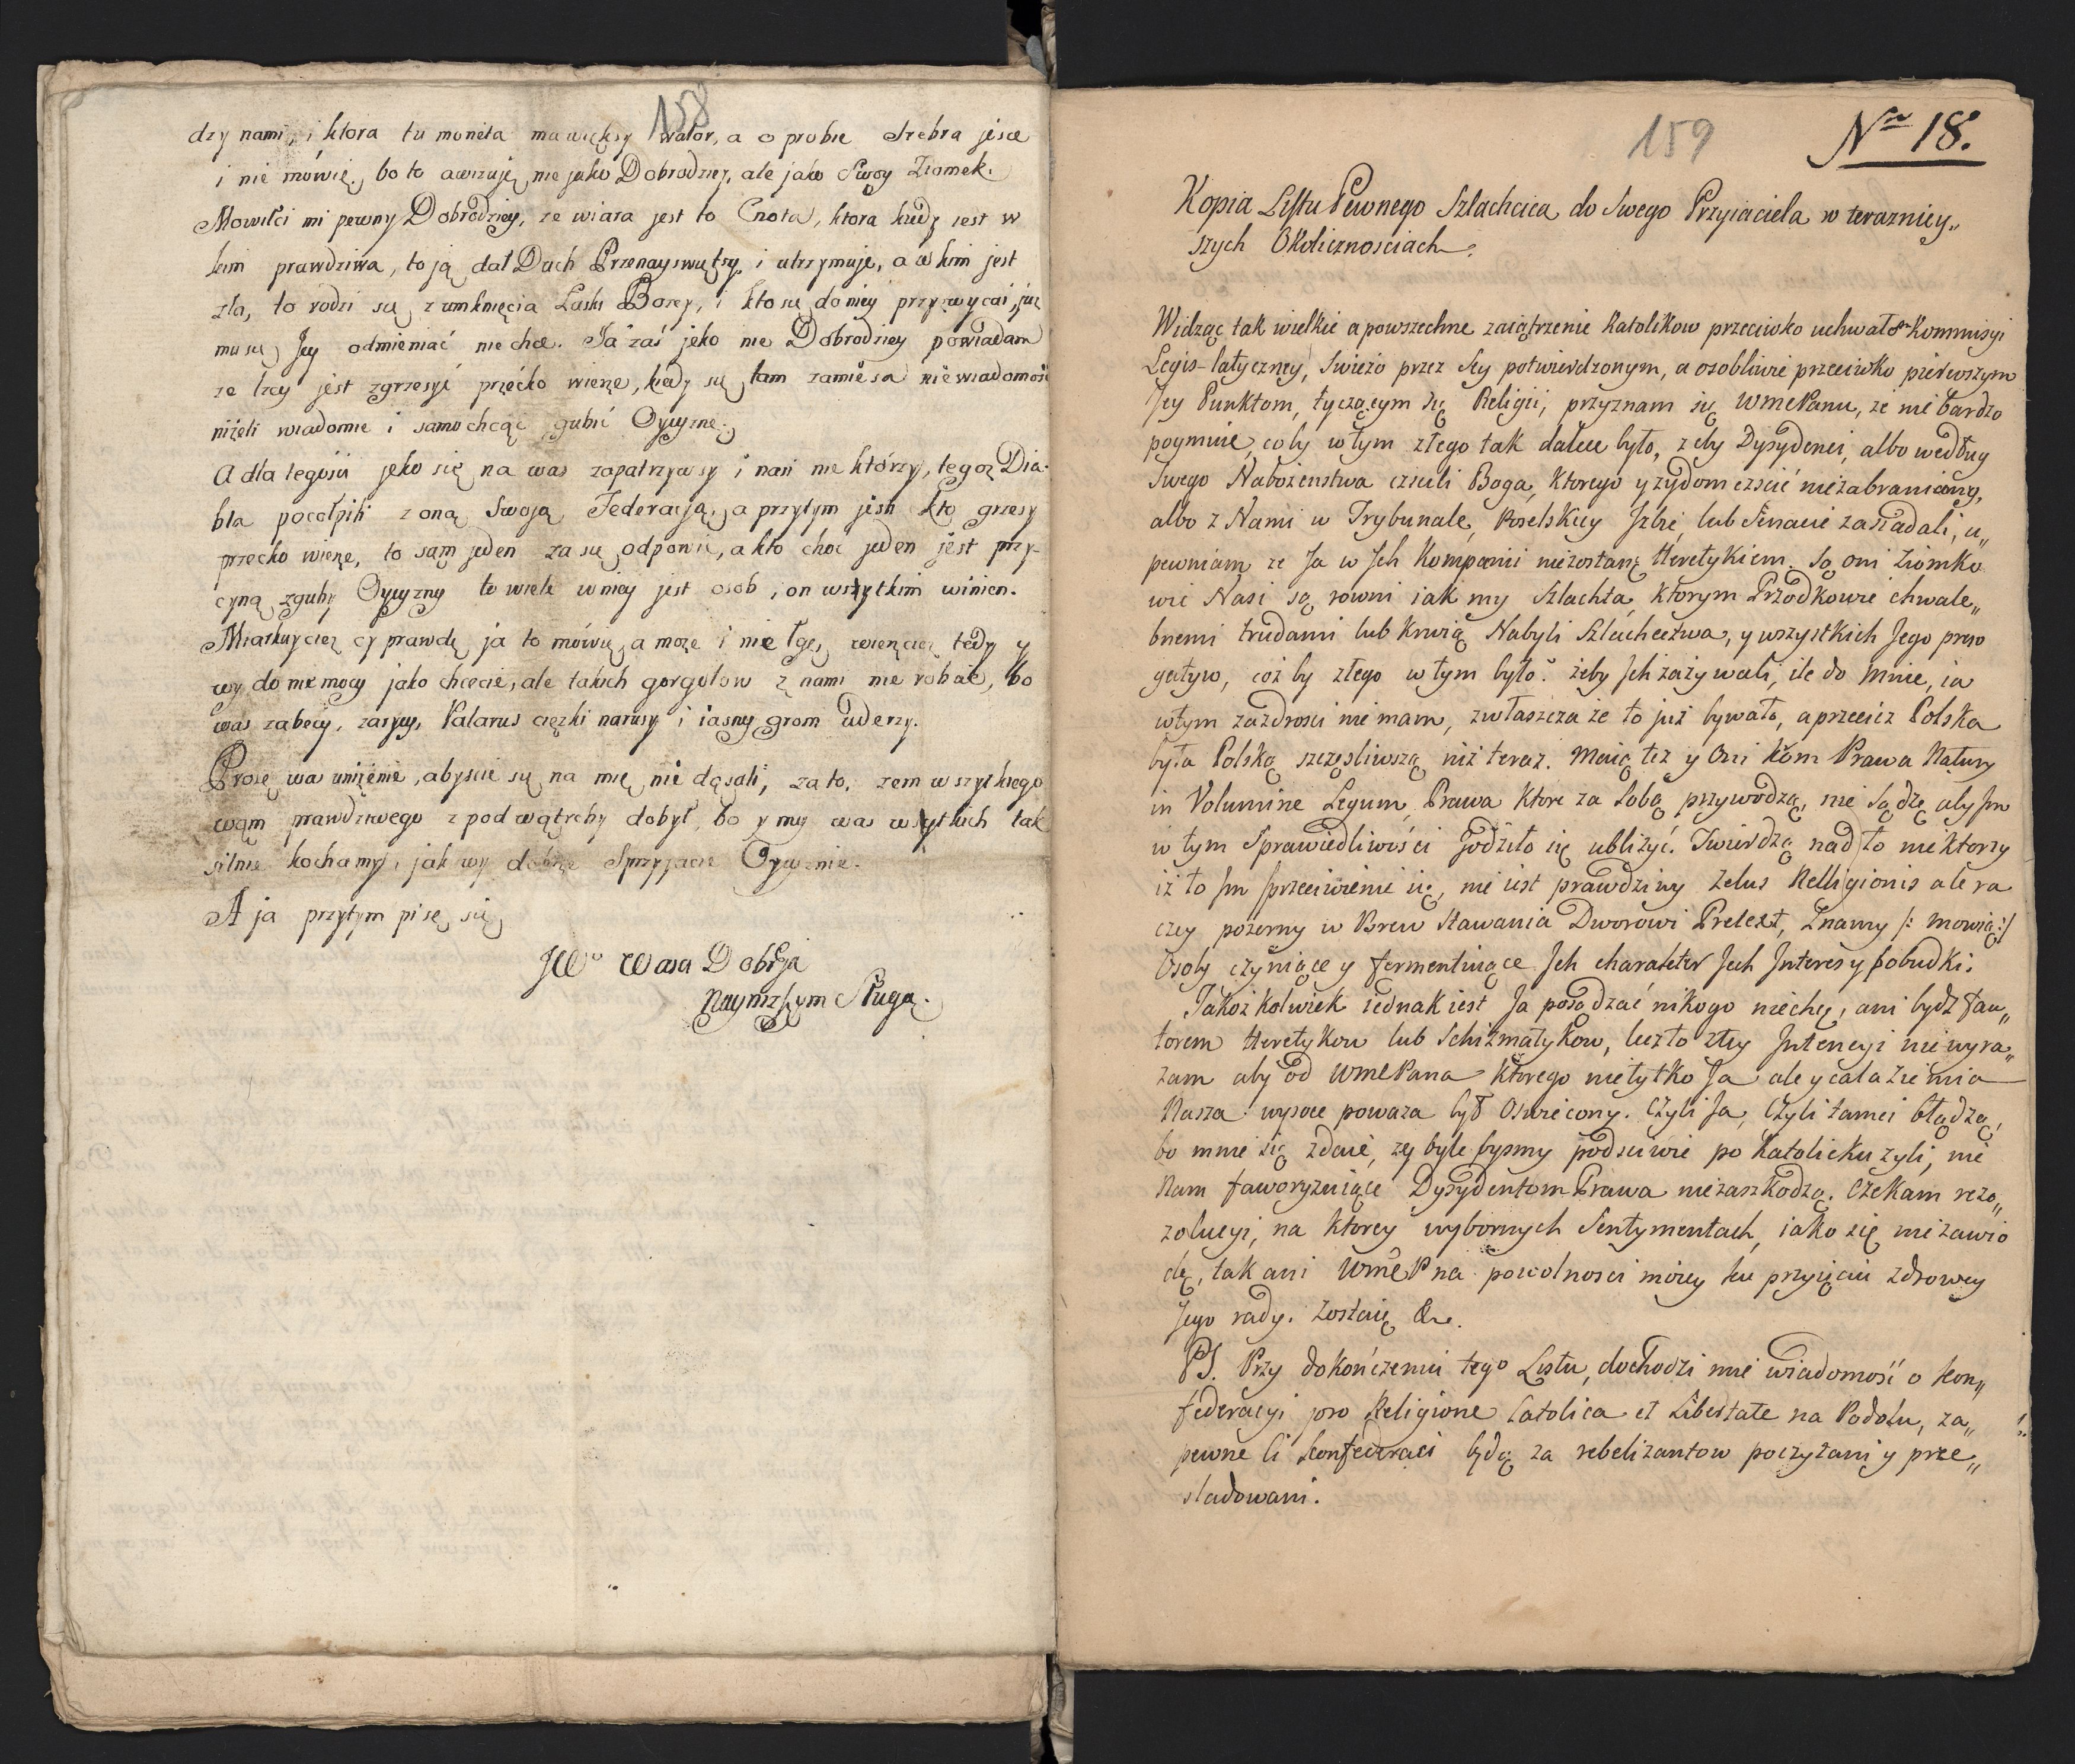 158
dzy nami, i ktora tu moneta ma więksy walor, a o probie Srebra jesce
i nie mówię, bo to awizuję nie jako Dobrodziey, ale jako Swoy Ziomek.
Mowiłci mi pewny Dobrodziey, ze wiara jest to Cnota, ktora kiedy jest w
kim prawdziwa, to ją dał Duch Przenayswiętsy i utrzymuje, a w kim jest
zła, to rodzi się z umknięcia Laski Bozey, i kto się do niey przyzwycai, juz
mu się Jey odmieniać nie chce. Ja zaś jeko nie Dobrodziey powiadam
ze lzey jest zgrzesyć przećko wierze, kiedy się tam zamiesa niewiadomość
niżeli wiadomie i samochcąc gubić Oyczyznę.
A dla tegosci jeko się na was zapatrzywsy i nasi niektórzy, tegoz Dia-
bła pocołpili z oną Swoją Federacją, a przytym jesli kto grzesy
przecko wierze, to sam jeden za się odpowie, a kto choć jeden jest przy-
cyną zguby Oyczyzny to wiele w niey jest osob, on wszytkim winien.
Miarkuycież cy prawdę ja to mówię, a moze i nie łgę, wierzcież tedy y
wy do niemocy jako chcecie, ale takich gorgołow z nami nie robcie, bo
was zabecy, zarycy, Palarus ciężki narusy i iasny grom uderzy.
Prosę wa unizenie, abyscie się na mię nie dąsali, za to, zem wszytkiego
wąm prawdziwego z pod wątroby dobył, bo y my was wszytkich tak
silnie kochamy, jak wy dobrze Sprzyjacie Oyczyznie.
A ja przytym pisę się
JW° Wasa Dobrja
Nayniższym Sługą.
159
Nro 18.
Kopia Listu Pewnego Szlachcica do Swego Przyiaciela w terazniey„
szych Okolicznosciach.
Widząc tak wielkie a powszechne zaiątrzenie Katolikow przeciwko uchwałom Kommisyi
Legis-latyczney, Swieżo przez Sey potwierdzonym, a osobliwie przeciwko pierwszym
Jey Punktom, tyczącym się Religii, przyznam się WmćPanu, że nie bardzo
poymuie, coby w tym złego tak dalece było, zeby Dysydenci, albo według
Swego Nabożenstwa czcili Boga, ktorego y zydom czcić niezabraniamy,
albo z Nami w Trybunale, Poselskiey Izbie, lub Senacie zasiadali, u„
pewniam ze Ja w Ich Kompanii niezostanę Heretykiem. Są oni Ziomko
wie Nasi są rowni iak my Szlachta, ktorym Przodkowie chwale„
bnemi trudami lub krwią Nabyli Szlachectwa, y wszystkich Jego prero
gatyw, coż by złego w tym było? żeby Ich zażywali, ile do mnie, ia
w tym zazdrosci nie mam, zwłaszcza że to już bywało, a przecież Polska
była Polską szczęsliwszą niż teraz. Maią też y Oni Kom Prawa Natury
in Volumine Legum, Prawa ktore za Sobą przywodzą, nie Sądzę aby Im
w tym Sprawiedliwości godziło się ubliżyć. Twierdzą nad to niektorzy
iż to Im sprzeciwienie się, nie iest prawdziwy Zelus Relligionis ale ra
czey pozorny w Brew Stawania Dworowi Pretext, Znamy /: mowią:/
Osoby czyniące y fermentuiące Ich charakter Ich Interesy pobudki.
Jakoż kolwiek iednak iest Ja posądzać nikogo niechcę, ani bydź Fau„
torem Heretykow lub Schizmatykow, lecz to złey Intencyi niewyra„
żam aby od WmćPana ktorego nietylko Ja ale y cała Ziemia
Nasza wysoce poważa być Oswiecony. Czyli Ja, Czyli tamci błądzą,
bo mnie się zdaie, zey byle bysmy podsciwie po Katolicku zyli, nie
Nam faworyzuiące Dysydentom Prawa niezaszkodzą. Czekam rezo„
zolucyi, na ktorey wybornych Sentymentach, iako się nie zawio
dę, tak ani WmćPna powolnosci moiey ku przyięciu zdrowey
Jego rady. Zostaię &c.
PS. Przy dokończeniu tego Listu, dochodzi mie wiadomość o Kon„
federacyi pro Religione Catolica et Libertate na Podolu, za„
pewne Ci Konfederaci będą za rebelizantow poczytani y prze„
sladowani.